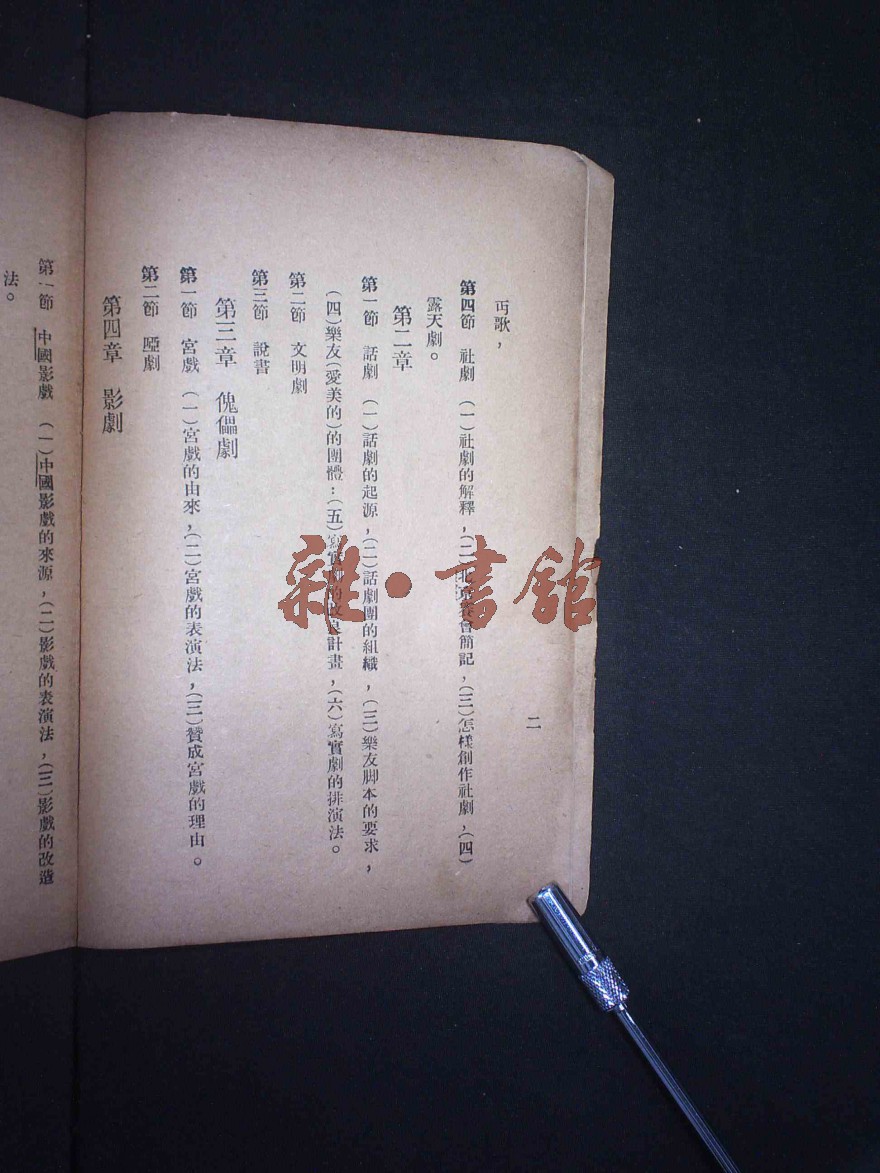 丐歌，
第四節　社劇　（一）社劇的解釋，（二）北會簡記，（三）怎樣創作社劇，（四）
露天劇。
第二章
第一節　話劇　（一）話劇的起源，（二）話劇團的組織，（三）樂友脚本的要求，
（四）樂友（愛美的）的團體：（五）寫實劇的改良計畫，（六）寫實劇的排演法。
第二節　文明劇
第三節　說書
第三章　傀儡劇
第一節　宮戲　（一）宮戲的由來，（二）宮戲的表演法，（三）贊成宮戲的理由。
第二節　啞劇
第四章　影劇
二
第一節　中國影戲　（一）中國影戲的來源，（二）影戲的表演法，（三）影戲的改造
法。
雜·書館